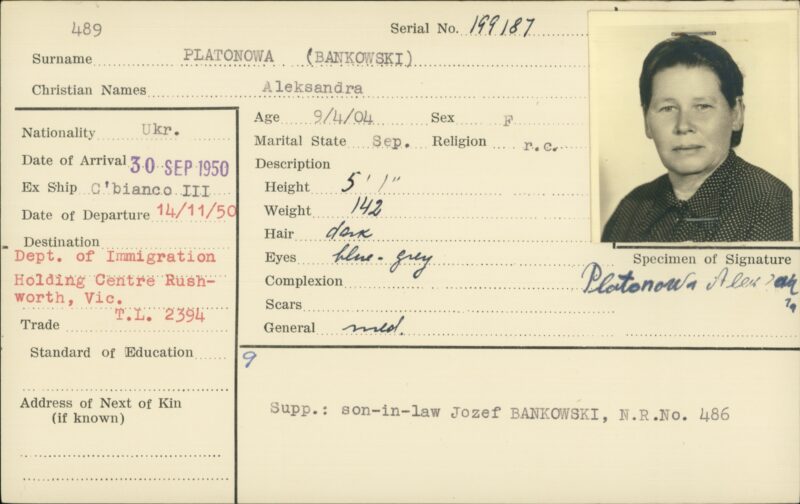 489
Serial No. 199187
Surname PLATONOWA (BANKOWSKI)
Christian Names Aleksandra
Nationality Ukr.
Date of Arrival 30 SEP 1950
Ex Ship C'bianco III
Date of Departure 14/11/50
Destination
Dept. of Immigration
Holding Centre Rush-
worth, Vic.
T.L. 2394
Trade
Standard of Education
Address of Next of Kin
(if known)
Age 9/4/04 Sex F
Marital State Sep. Religion r.c.
Description
Height 5' 1"
Weight 142
Hair dark
Eyes blue-grey
Complexion
Scars
General med.
Specimen of Signature
Platonowa
9
Supp.: son-in-law Jozef BANKOWSKI, N.R.No. 486